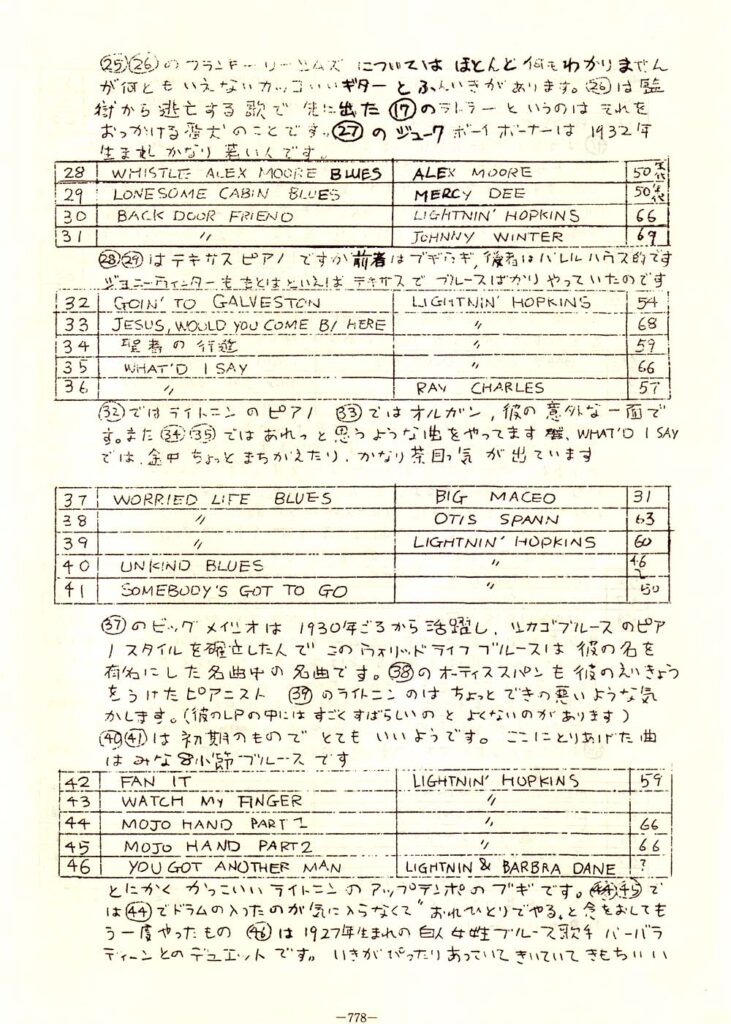 ㉕㉖のフランキーリーシムズ についてはほとんど何もわかりません
が何ともいえないカッコいいギターとふんいきがあります。㉖は監
獄から逃亡する歌で 先に出た⑰のラトラーというのはそれを
おっかける番犬のことです。㉗のジューク ボーイ ボーナーは 1932年
生まれ かなり若い人です。
28 WHISTLE ALEX MOORE BLUES ALEX MOORE 50年代
29 LONESOME CABIN BLUES MERCY DEE 50年代
30 BACK DOOR FRIEND LIGHTNIN' HOPKINS 66
31 〃 JOHNNY WINTER 69
㉘㉙はテキサス ピアノ ですが前者はブギウギ, 後者はバレルハウス的です
ジョニーウィンターももとはといえば テキサスで ブルースばかりやっていたのです
32 GOIN' TO GALVESTON LIGHTNIN' HOPKINS 54
33 JESUS, WOULD YOU COME BY HERE 〃 68
34 聖者の行進 〃 59
35 WHAT'D I SAY 〃 66
36 〃 RAY CHARLES 57
㉜ではライトニンのピアノ ㉝ではオルガン, 彼の意外な一面で
す。また㉞㉟ではあれっと思うような曲をやってます、WHAT'D I SAY
では、途中ちょっとまちがえたり、かなり茶目っ気が出ています
37 WORRIED LIFE BLUES BIG MACEO 31
38 〃 OTIS SPANN 63
39 〃 LIGHTNIN' HOPKINS 60
40 UNKIND BLUES 〃 46
41 SOMEBODY'S GOT TO GO 〃 50
㊲のビッグ メイシオは 1930年ごろから活躍し、シカゴブルースのピア
ノスタイルを確立した人で このウォリッドライフ ブルースは彼の名を
有名にした名曲中の名曲です。㊳のオーティススパンも彼のえいきょう
をうけたピアニスト ㊴のライトニンのはちょっとできの悪いような気
がします。(彼のLPの中にはすごくすばらしいのと よくないのがあります)
㊵㊶は初期のもので とても いいようです。ここにとりあげた曲
はみな8小節ブルースです
42 FAN IT LIGHTNIN' HOPKINS 59
43 WATCH MY FINGER 〃
44 MOJO HAND PART 1 〃 66
45 MOJO HAND PART 2 〃 66
46 YOU GOT ANOTHER MAN LIGHTNIN & BARBRA DANE ?
とにかく かっこいいライトニンのアップテンポのブギです。㊹㊺で
は㊹でドラムの入ったのが気に入らなくて"おれひとりでやる"と念をおしても
う一度やったもの ㊻は1927年生まれの白人女性ブルース歌手 バーバラ
ディーンとのデュエットです。 いきがぴったりあっていてきいていてきもちいい
—778—